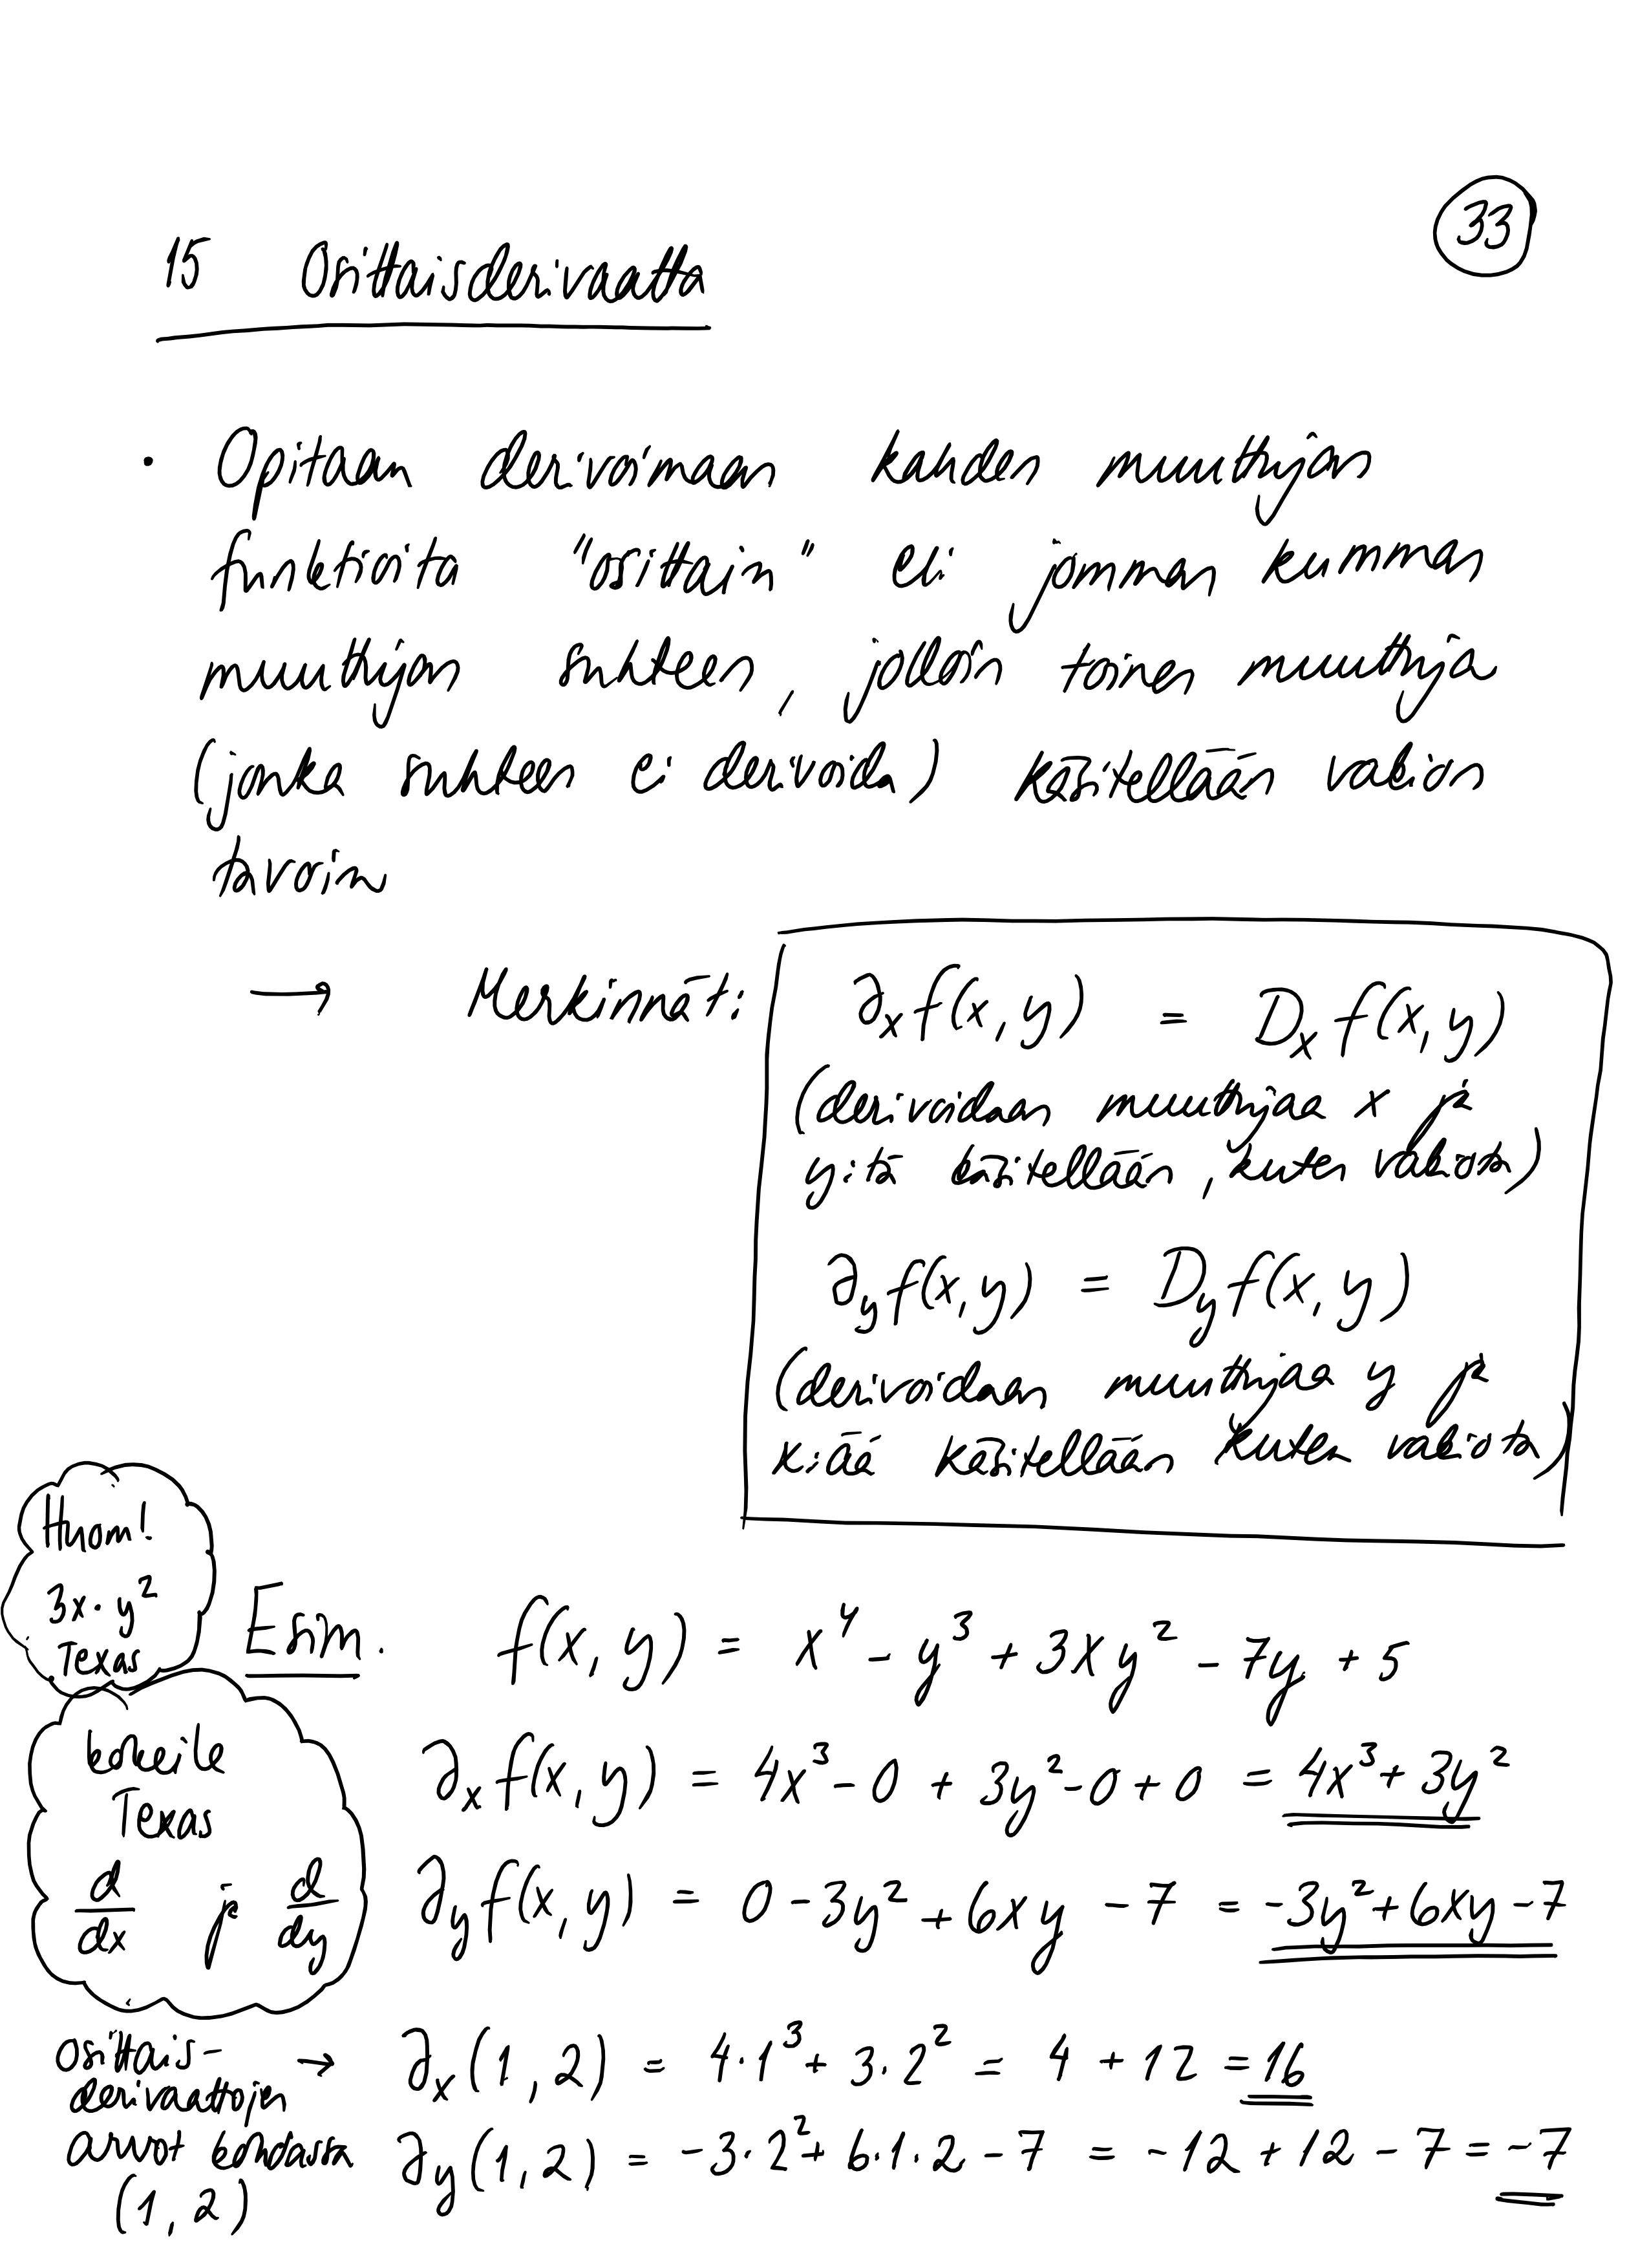 33
15 Osittaisderivaatta
• Opitaan derivoimaan kahden muuttujan
funktioita "osittain" eli jomman kumman
muuttujan suhteen, jolloin toinen muuttuja
(jonka suhteen ei derivoida) käsitellään vakion
tavoin
→ Merkinnät:
∂ₓf(x,y) = Dₓf(x,y)
(derivoidaan muuttujaa x ja
y:itä käsitellään, kuten vakiota)
∂_y f(x,y) = D_y f(x,y)
(derivoidaan muuttujaa y ja
x:ää käsitellään kuten vakiota)
Huom!
3x·y²
Texas
Esim. f(x,y) = x⁴ - y³ + 3xy² - 7y + 5
kokeile
Texas
d/dx ja d/dy
∂ₓf(x,y) = 4x³ - 0 + 3y² - 0 + 0 = 4x³ + 3y²
∂_y f(x,y) = 0 - 3y² + 6xy - 7 = -3y² + 6xy - 7
osittais-
derivaattojen
arvot kohdassa
(1,2)
→ ∂ₓ(1,2) = 4·1³ + 3·2² = 4 + 12 = 16
∂_y(1,2) = -3·2² + 6·1·2 - 7 = -12 + 12 - 7 = -7